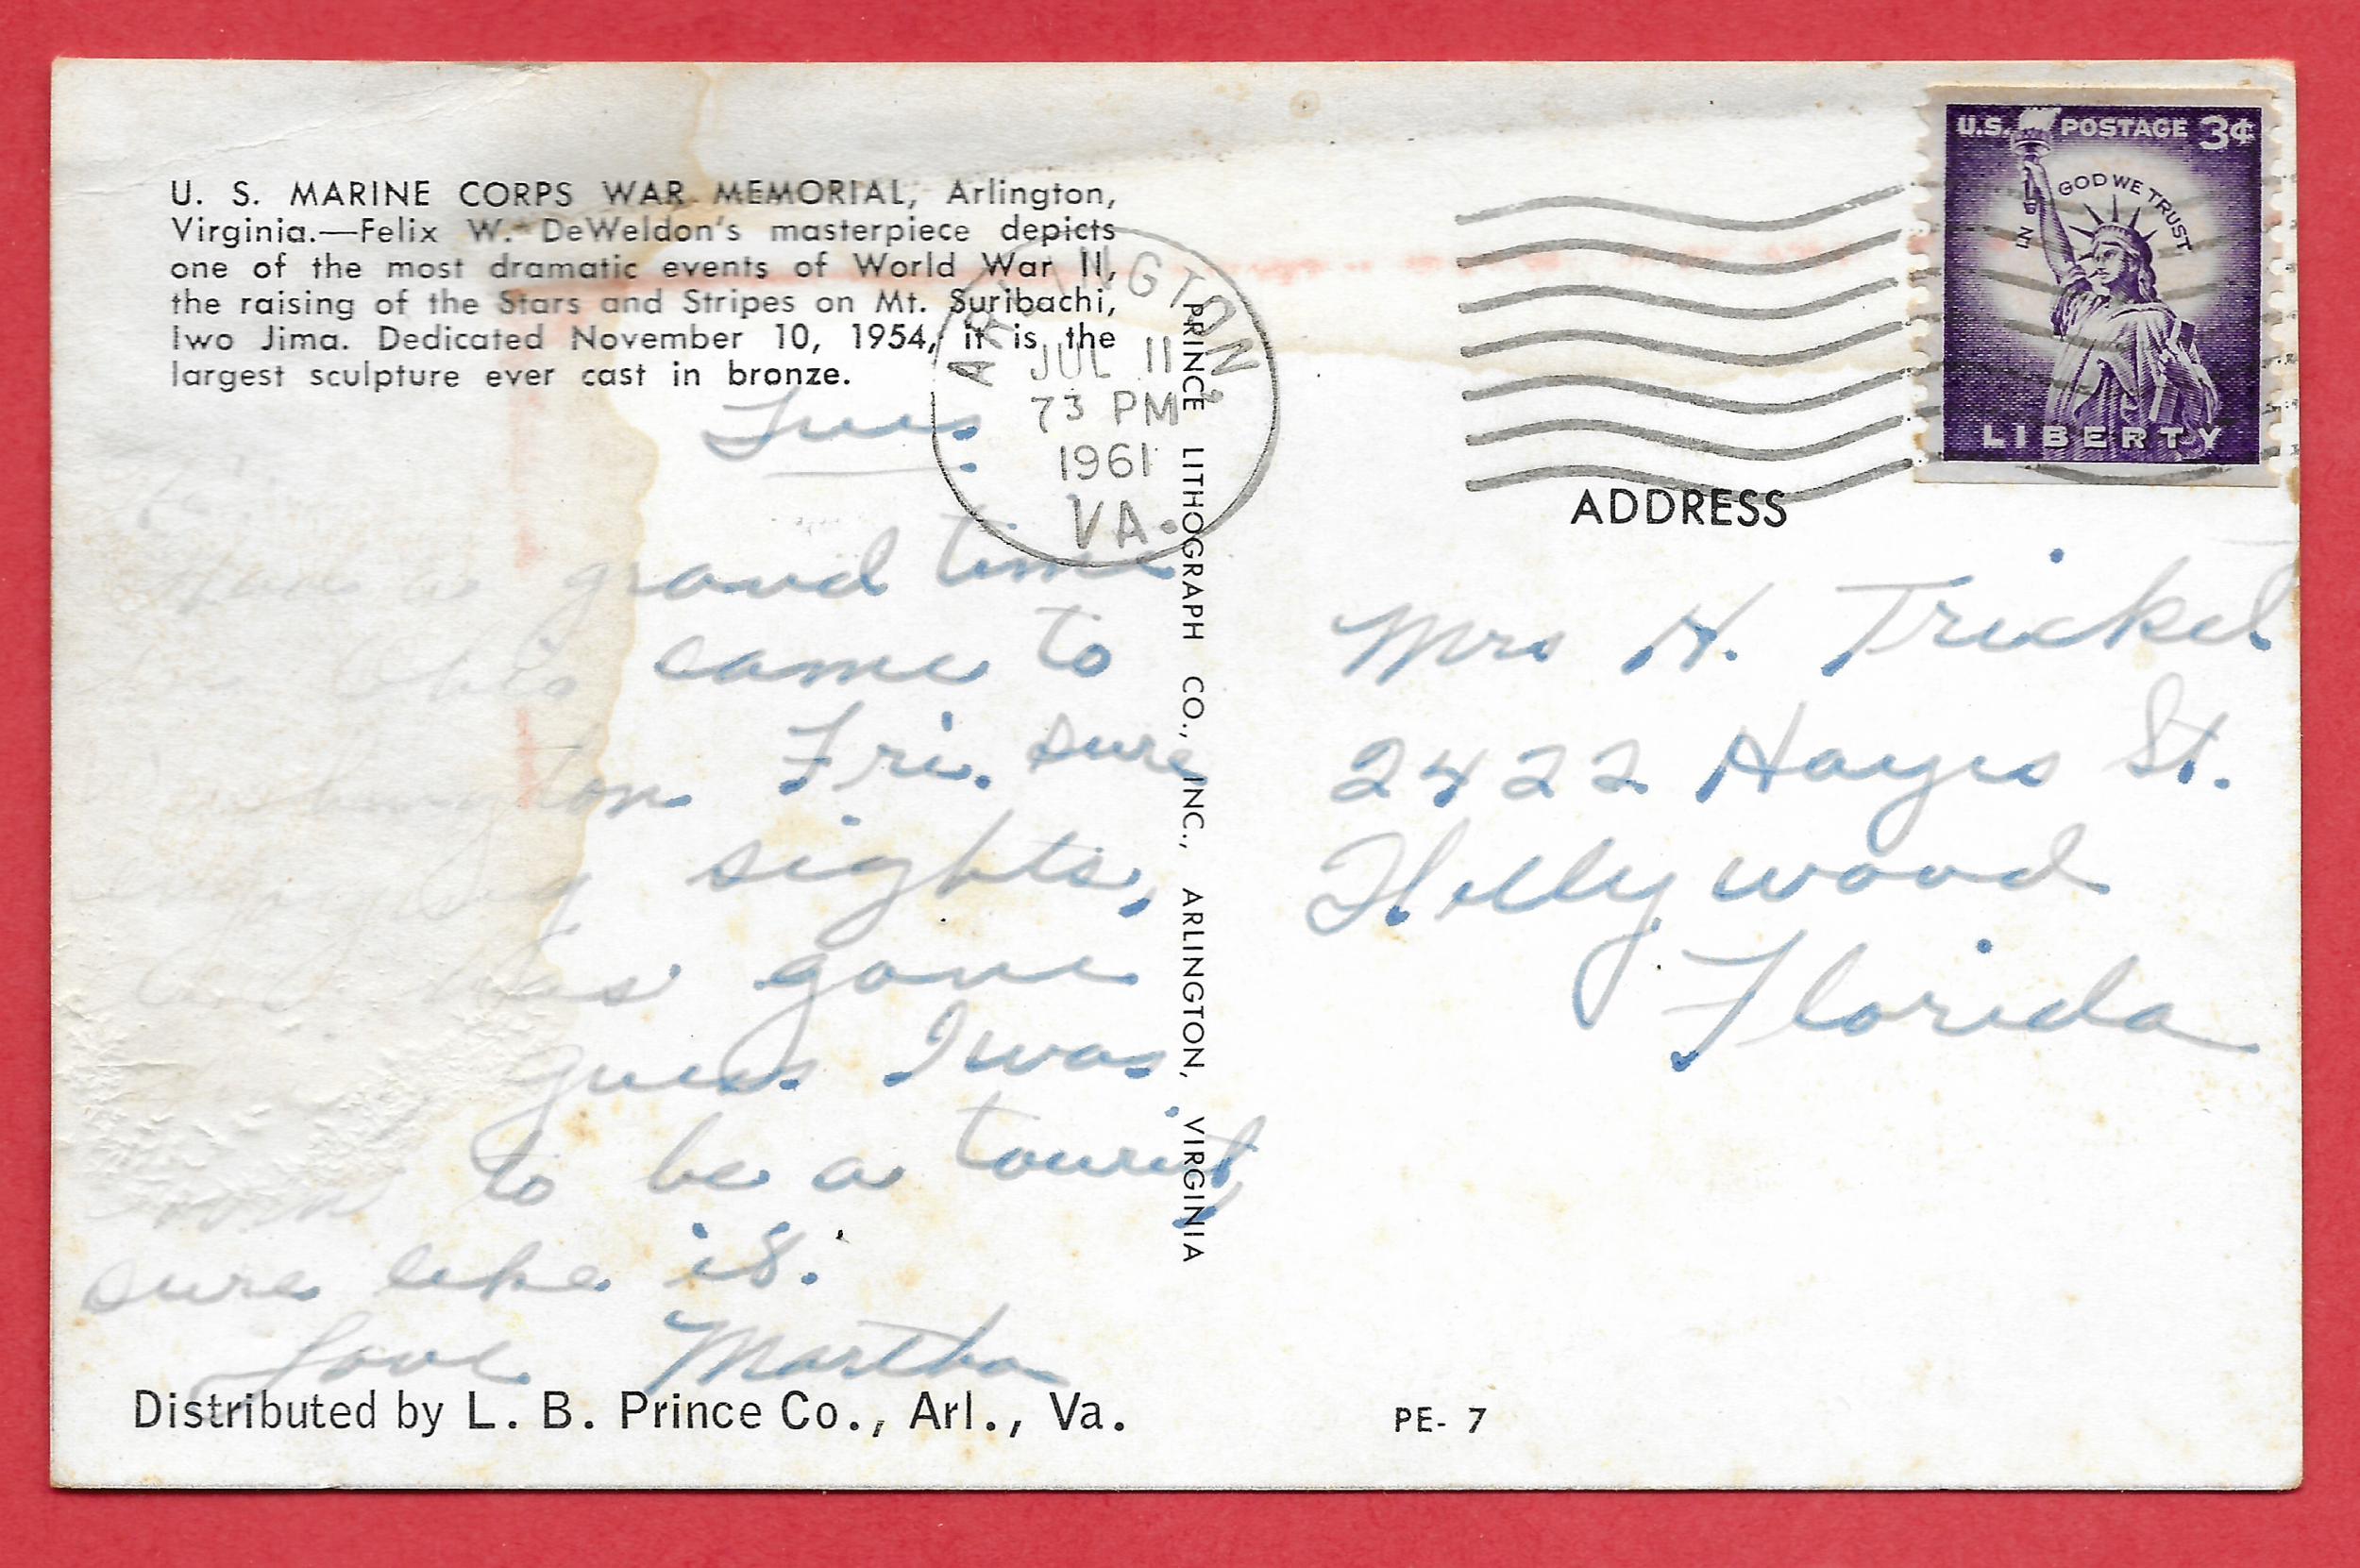 U. S. MARINE CORPS WAR MEMORIAL, Arlington,
Virginia.—Felix W. DeWeldon's masterpiece depicts
one of the most dramatic events of World War II,
the raising of the Stars and Stripes on Mt. Suribachi,
Iwo Jima. Dedicated November 10, 1954, it is the
largest sculpture ever cast in bronze.
Tues.
Had a grand time
Ohio came to
Fri. sure
enjoying sights,
has gone
guess I was
born to be a tourist,
sure like it.
Love Martha
Distributed by L. B. Prince Co., Arl., Va.
ARLINGTON,
JUL 11
73 PM
1961
VA.
PRINCE LITHOGRAPH CO., INC., ARLINGTON, VIRGINIA
U.S. POSTAGE 3¢
IN GOD WE TRUST
LIBERTY
ADDRESS
Mrs H. Trickel
2422 Hayes St.
Hollywood
Florida
PE- 7